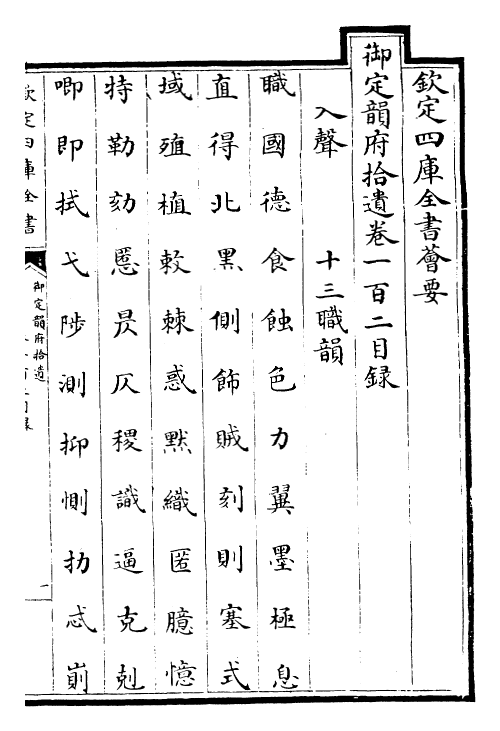 欽定四庫全書薈要
御定韻府拾遺卷一百二目録
入聲 十三職韻
職國德食蝕色力翼墨極息
直得北黑側飾賊刻則塞式
域殖植敕棘惑默織匿臆憶
特勒劾慝昃仄稷識逼克剋
唧即拭弋陟測抑惻扐忒
欽定四庫全書
御定韻府拾遺
一